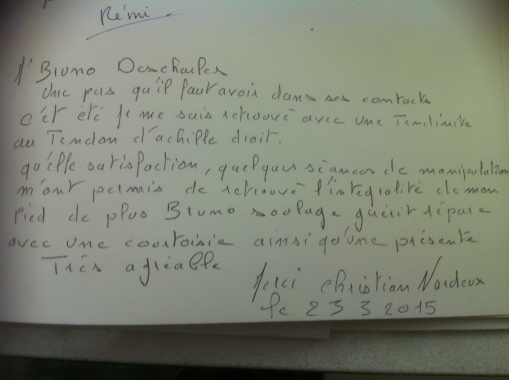 Rémi
à Bruno Descharles
Une pas qu'il faut avoir dans ses contacts
c'ét été je me suis retrouvé avec une Tendinite
au Tendon d'achille droit.
qu'elle satisfaction, quelques séances de manipulation
m'ont permis de retrouvé l'intégralité de mon
pied de plus Bruno soulage guérit répare
avec une courtoisie ainsi qu'une présente
Très agréable
Merci Christian
le 23 3 2015